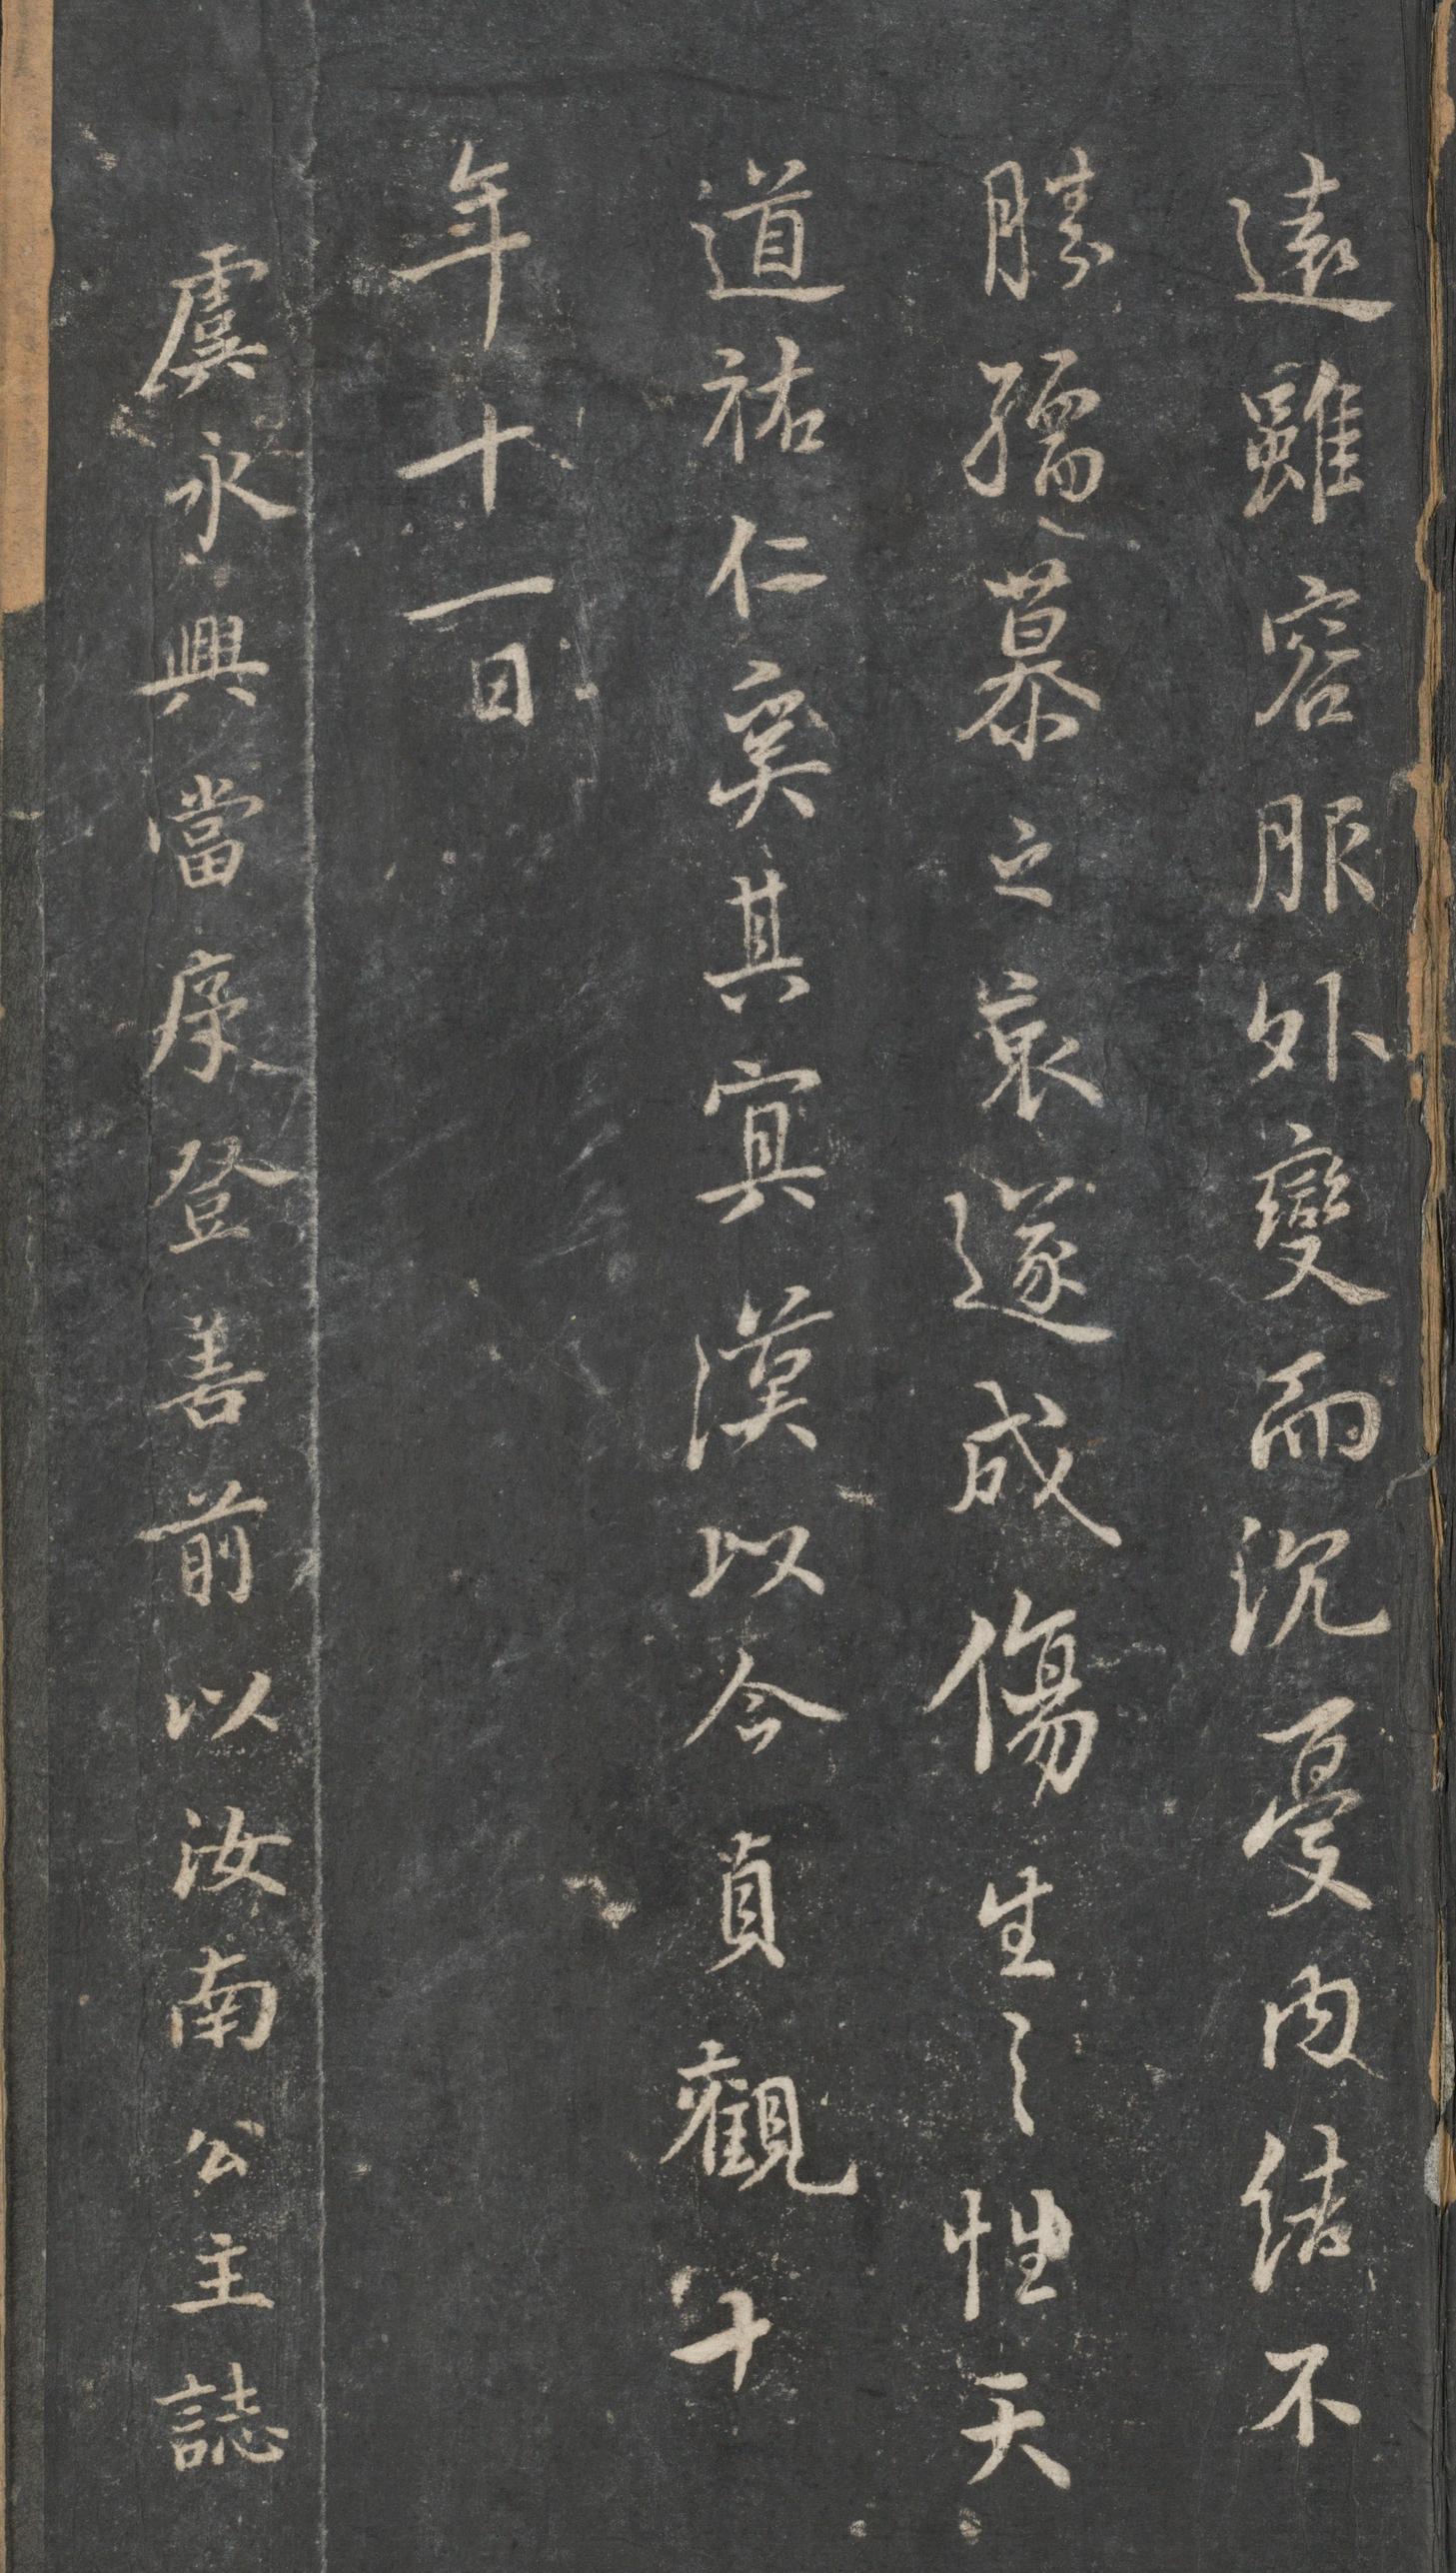 遠雖容服外變而沉憂內結不
勝孺慕之哀遂成傷生之性天
道祐仁奚其冥漠以今貞觀十
年十一日
虞永興當序登善前以汝南公主誌